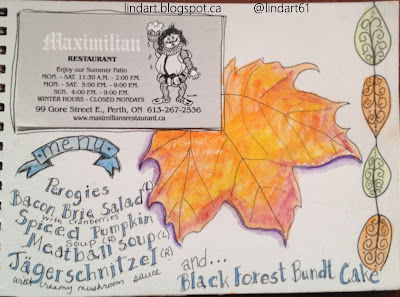 lindart.blogspot.ca @lindart61
Maximilian
RESTAURANT
Enjoy our Summer Patio
MON. - SAT. 11:30 A.M. - 2:00 P.M.
MON. - SAT. 5:00 P.M. - 9:00 P.M.
SUN. 4:00 P.M. - 9:00 P.M.
WINTER HOURS - CLOSED MONDAYS
99 Gore Street E., Perth, ON 613-267-2536
www.maximiliansrestaurant.ca
menu
Perogies
Bacon Brie Salad (L)
with cranberries
Spiced Pumpkin
Soup (R)
Meatball Soup (L)
Jägerschnitzel (R)
with creamy mushroom sauce
and...
Black Forest Bundt Cake